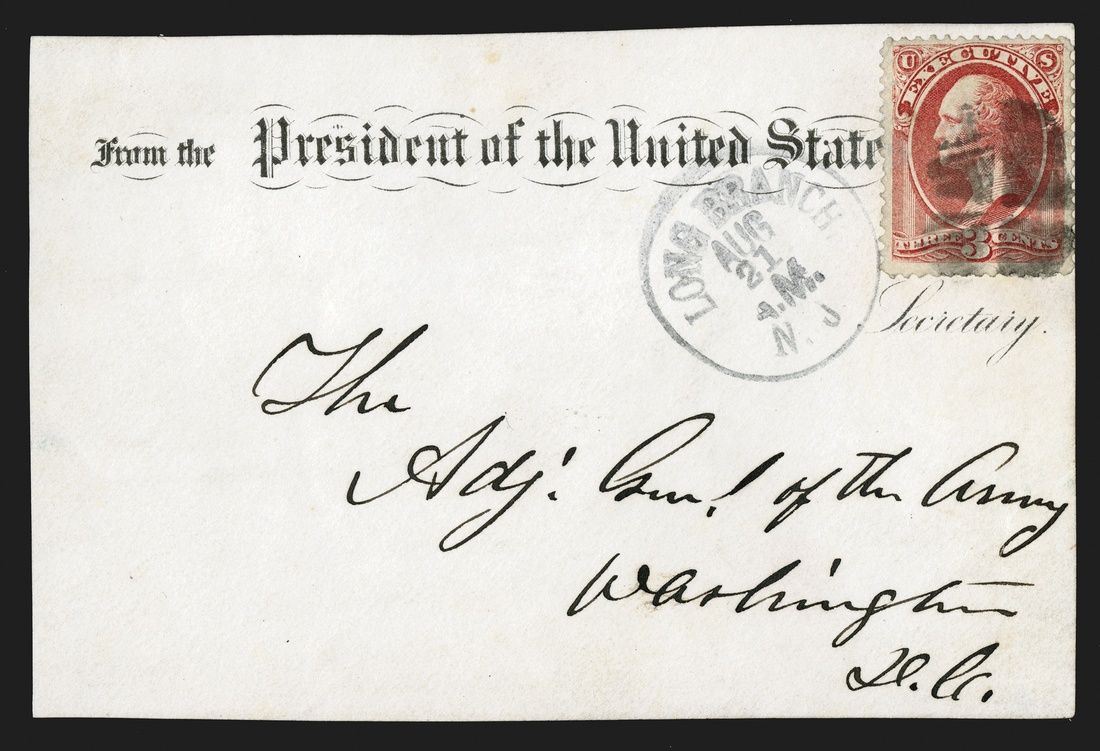 U S
EXECUTIVE
From the President of the United State
THREE 3 CENTS
LONG BRANCH
AUG
21
A.M.
N. J
Secretary.
The
Adj. Genl. of the Army
Washington
D.C.